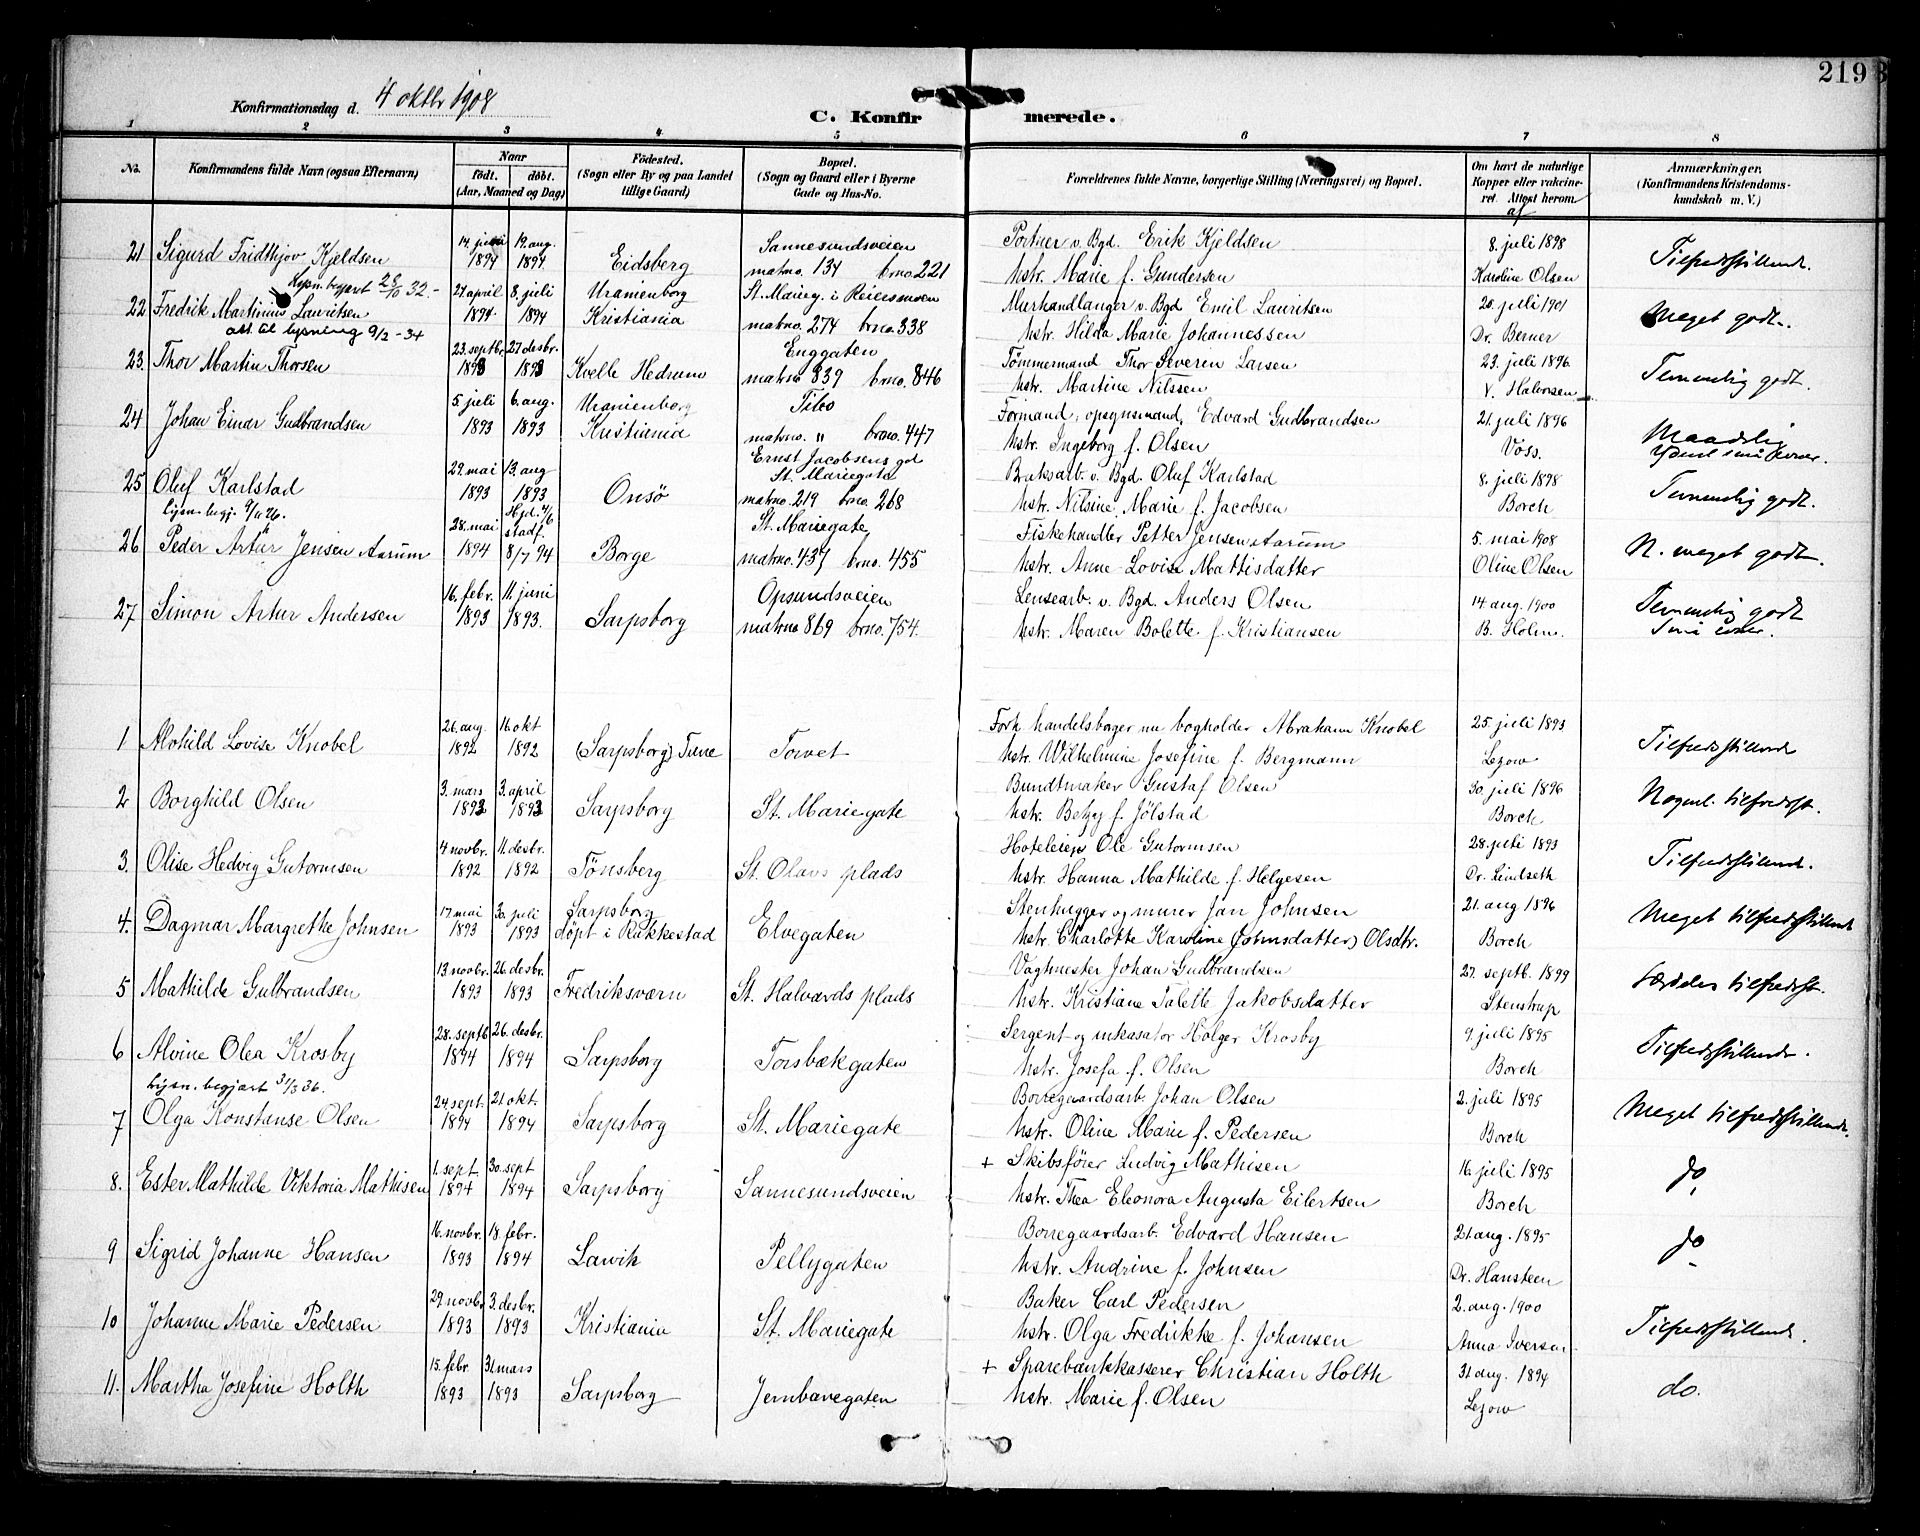 219
Konfirmationsdag d. 4 oktbr 1908
C. Konfirmerede.
1 2 3 4 5 6 7 8
No. Konfirmandens fulde Navn (ogsaa Efternavn) Naar født. døbt. (Aar, Maaned og Dag) Fødested. (Sogn eller By og paa Landet tillige Gaard) Bopæl. (Sogn og Gaard eller i Byerne Gade og Hus-No. Forældrenes fulde Navne, borgerlige Stilling (Næringsvei) og Bopæl. Om havt de naturlige Kopper eller vakcineret. Attest herom af Anmærkninger. (Konfirmandens Kristendomskundskab m. V.)
21 Sigurd Fridthjov Kjeldsen 14. juni 1894 19. aug. 1894 Eidsberg Sannesundsveien matrno. 134 brno. 221 Portner v. Bgd. Erik Kjeldsen 8. juli 1898 Tilfredsstillende.
hstr. Marie f. Gundersen Karoline Olsen
Lysn. begjært 28/10 32.-
22 Fredrik Martinius Lauritsen 27 april 1894 8. juli 1894 Uranienborg Kristiania St. Marieg. i Reiersmoen matrno. 274 brno. 338 Murhandlanger v. Bgd Emil Lauritsen 20. juli 1901 Meget godt.
att til lysning 9/2-34 hstr. Hilda Marie Johannessen Dr. Berner
23. Thor Martin Thorsen 23. septbr. 1893 27 desbr. 1893 Kvelle Hedrum Enggaten matrno 839 brno. 846 Tømmermand Thor Severen Larsen 23. juli 1896 Temmelig godt.
hstr. Martine Nilssen V. Halvorsen
24 Johan Einar Gudbrandsen 5 juli 1893 6. aug. 1893 Uranienborg Kristiania Tibo matrno. " brno. 447 Formand, opsynsmand, Edvard Gudbrandsen 21. juli 1896 Maadelig
hstr. Ingeborg f. Olsen Voss. yderst små evner.
25 Oluf Karlstad 29. mai 1893 13. aug 1893 Onsö Ernst Jacobsens gd St. Mariegata matrno. 219 brno. 268 Bruksarb. v. Bgd. Oluf Karlstad 8. juli 1898 Temmelig godt.
Lysn. begj. 9/11 26. hstr. Nilsine Marie f. Jacobsen Borch
26 Peder Artur Jensen Aarum 28. mai 1894 Hjd. 4/6 stadf. 8/7 94 Borge St. Mariegate matrno. 437 brno. 455 Fiskehandler Petter Jensen Aarum 5. mai 1908 N. meget godt
hstr. Anne Lovise Mattisdatter Oline Olsen
27 Simon Artur Andersen 16. febr. 1893 11. juni 1893. Sarpsborg Opsundsveien matrno 869 brno. 754. Lensearb. v. Bgd. Anders Olsen 14 aug. 1900 Temmelig godt
hstr. Maren Bolette f. Kristiansen B. Holm. små evner.
1 Alvhild Lovise Knobel 26. aug. 1892 16. okt 1892 (Sarpsborg) Tune Torvet Forh. handelsborger nu bogholder Abraham Knobel 25. juli 1893 Tilfredsstillende
hstr. Wilhelmine Josefine f. Bergmann Lezow
2 Borghild Olsen 3. mars 1893 3. april 1893 Sarpsborg St. Mariegate Bundtmaker Gustaf Olsen 30. juli 1896 Nogenl. tilfredsst.
hstr. Betzy f. Jölstad Borch
3. Olise Hedvig Gutormsen 4 novbr. 1892 11. desbr. 1892 Tönsberg St. Olavs plads Hoteleier Ole Gutormsen 28. juli 1893 Tilfredsstillende.
hstr. Hanna Mathilde f. Helgesen Dr. Lindseth
4. Dagmar Margrethe Johnsen 17. mai 1893 30. juli 1893 Sarpsborg döpt i Rakkestad Elvegaten Stenhugger og murer Jan Johnsen 21. aug 1896 Meget tilfredsstillende
hstr. Charlotte Karoline (Johnsdatter) Olsdtr. Borch
5 Mathilde Gulbrandsen 13. novbr. 1893 26. desbr. 1893 Fredriksværn St. Halvards plads Vagtmester Johan Gudbrandsen 27. septb. 1899 Særdeles tilfredsst.
hstr. Kristiane Talette Jakobsdatter Stenstrup
6 Alvine Olea Krosby 28. septb 1894 26. desbr. 1894 Sarpsborg Torsbækgaten Sergent og inkasator Holger Krosby 9. juli 1895 Tilfredsstillende.
Lysn. begjært 31/3 36. hstr. Josefa f. Olsen Borch
7 Olga Konstanse Olsen 24. sept. 1894 21. okt. 1894 Sarpsborg St. Mariegate Borregaardsarb. Johan Olsen 2. juli 1895 Meget tilfredsstillende.
hstr. Oline Marie f. Pedersen Borch
8. Ester Mathilde Viktoria Mathisen 1. sept. 1894 30. sept 1894 Sarpsborg Sannesundsveien + Skibsförer Ludvig Mathisen 16. juli 1895 do.
hstr. Thea Eleonora Augusta Eilertsen Borch
9 Sigrid Johanne Hansen 16. novbr. 1893 18. febr. 1894 Larvik Pellygaten Borregaardsarb. Edvard Hansen 21. aug. 1895 do.
hstr. Andrine f. Johnsen Dr. Hansteen
10 Johanne Marie Pedersen 29. novbr 1893 3. desbr. 1893 Kristiania St. Mariegate Baker Carl Pedersen 2. aug. 1900 Tilfredsstillende.
hstr. Olga Fredrikke f. Johansen Anna Iversen
11. Martha Josefine Holth 15. febr 1893 31. mars 1893 Sarpsborg Jernbanegaten + Sparebankkasserer Christian Holth 31 aug. 1894 do.
hstr. Marie f. Olsen Lezow